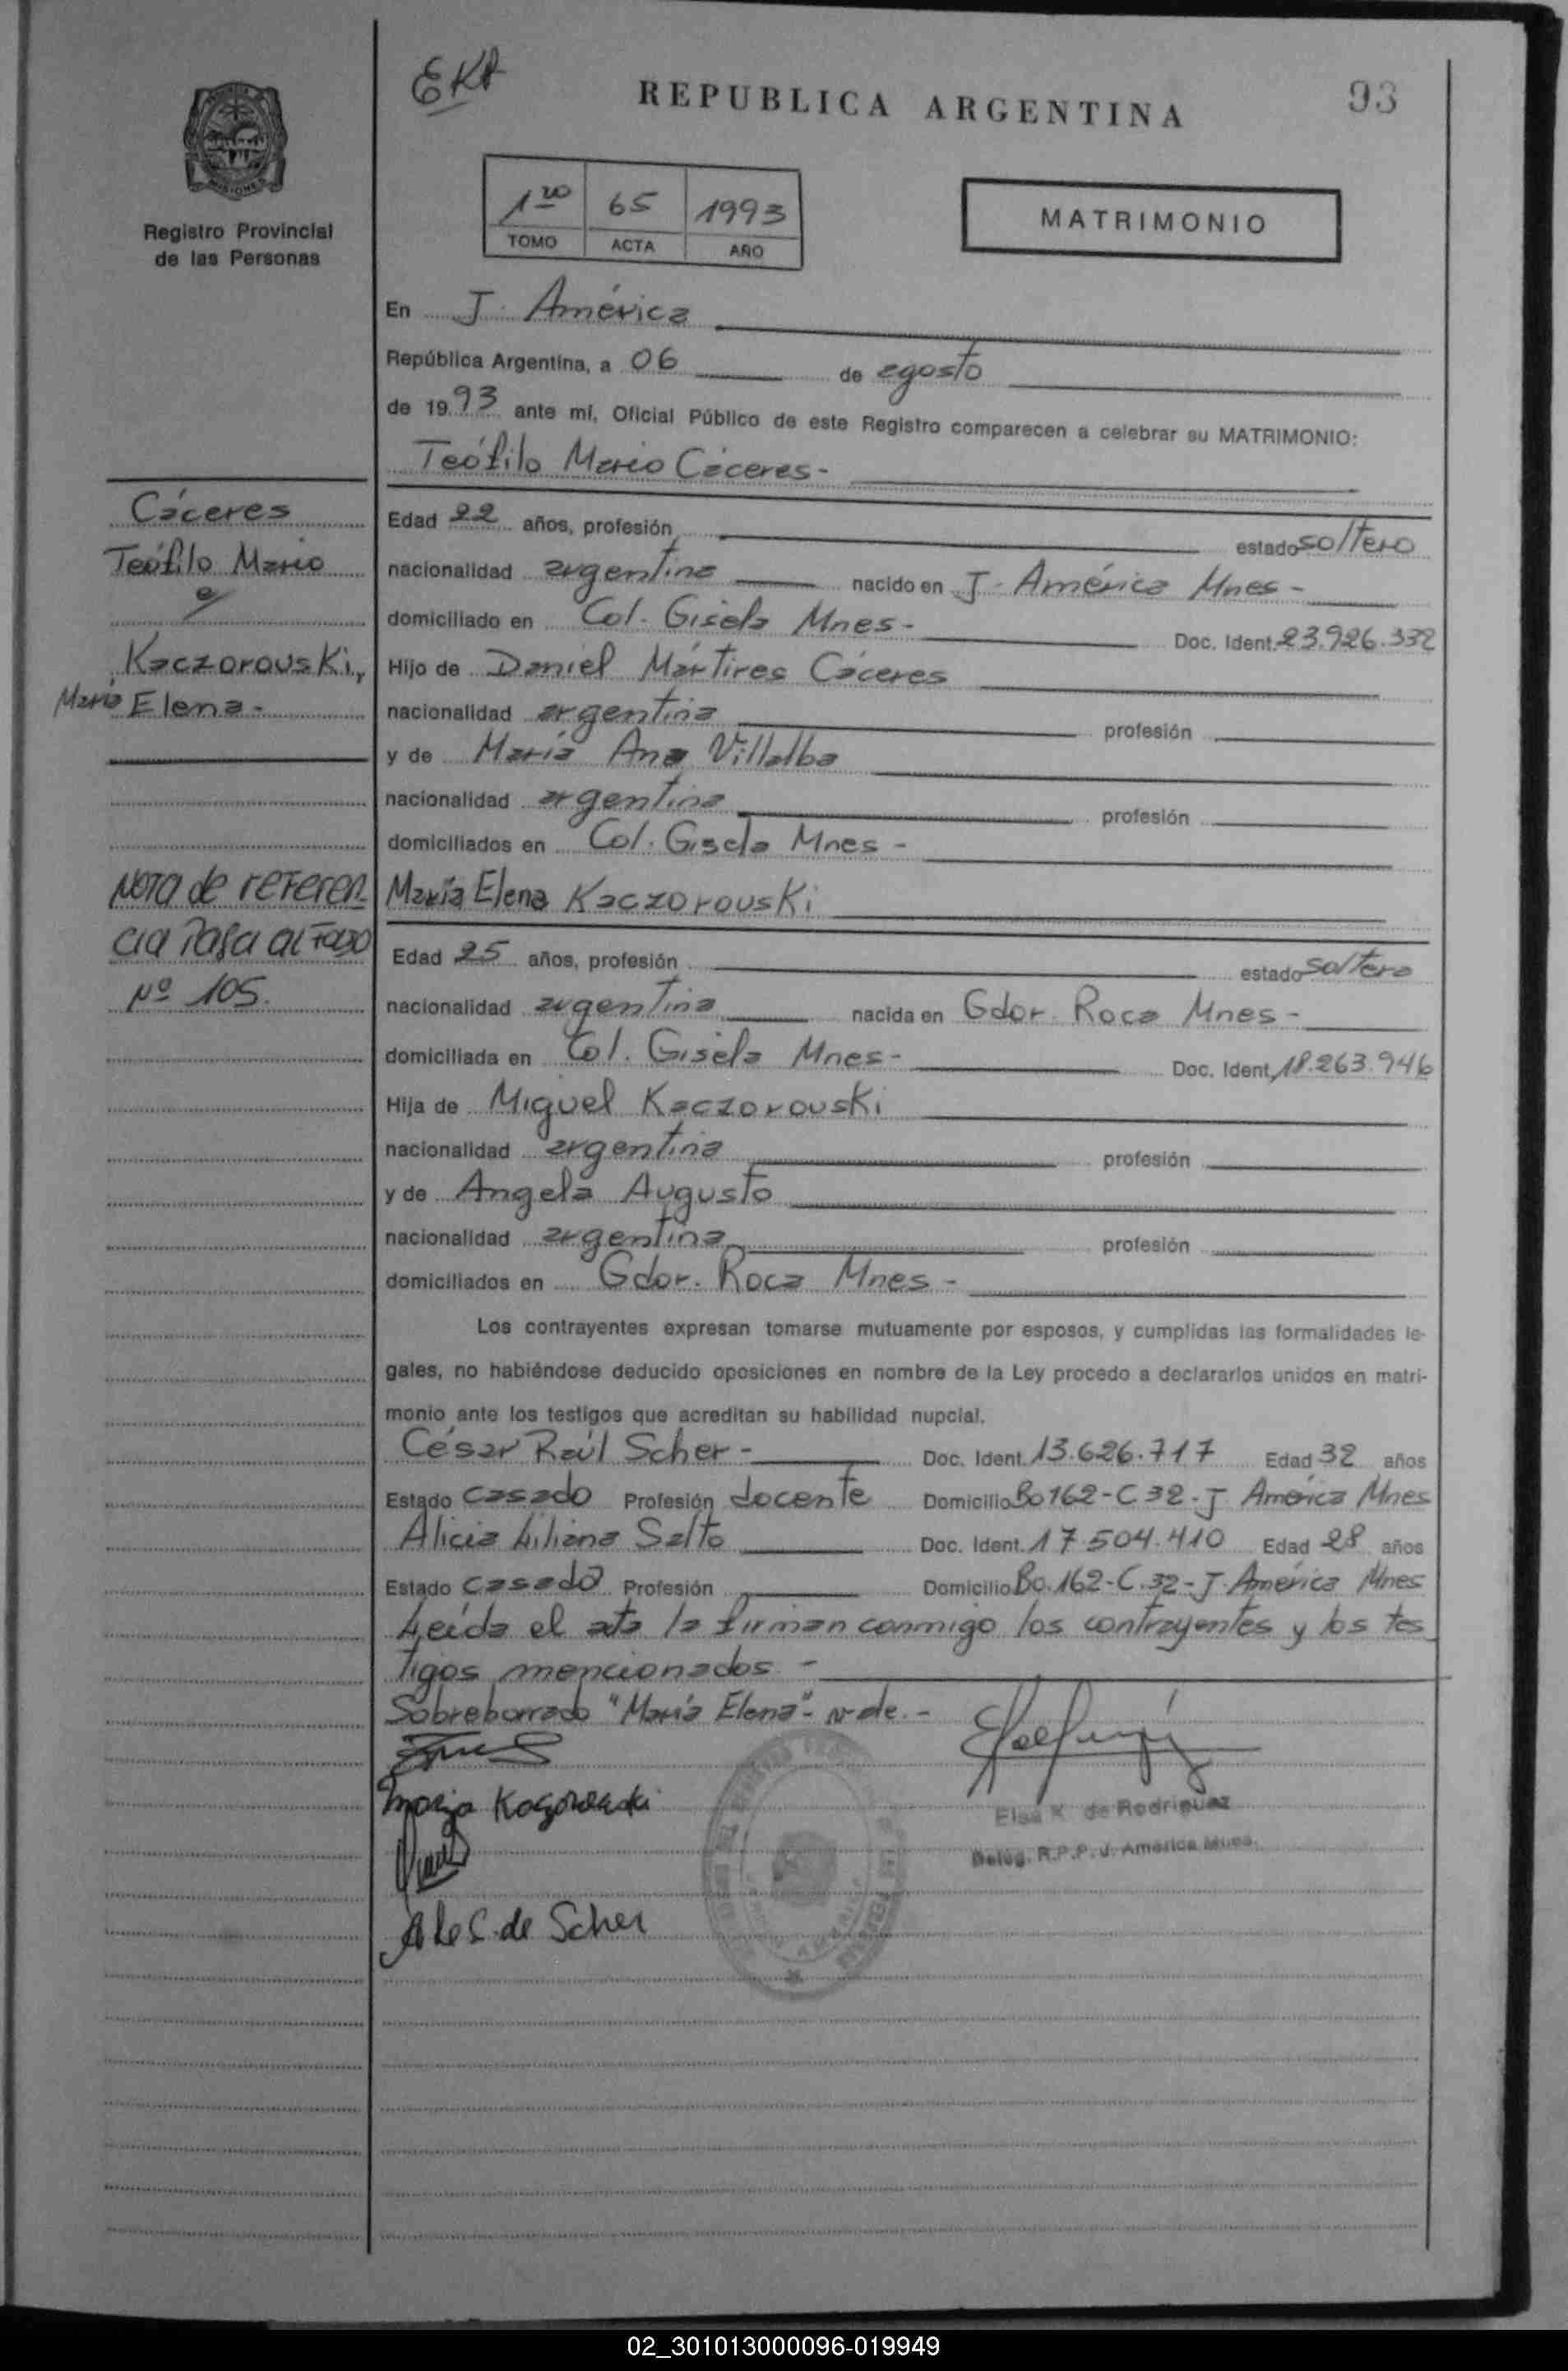 EKR
REPUBLICA ARGENTINA
93
MISIONES
Registro Provincial
de las Personas
1ro 65 1993
TOMO ACTA AÑO
MATRIMONIO
En J. América
República Argentina, a 06 de agosto
de 1993 ante mí, Oficial Público de este Registro comparecen a celebrar su MATRIMONIO:
Teófilo Mario Cáceres-
Cáceres
Teófilo Mario
c/
Kaczorouski,
María Elena-
Nota de referen
cia Pasa al Folio
Nº 105.
Edad 22 años, profesión estado soltero
nacionalidad argentina nacido en J. América Mnes-
domiciliado en Col. Gisela Mnes- Doc. Ident. 23.926.332
Hijo de Daniel Mártires Cáceres
nacionalidad argentina profesión
y de María Ana Villalba
nacionalidad argentina profesión
domiciliados en Col. Gisela Mnes-
María Elena Kaczorouski
Edad 25 años, profesión estado soltera
nacionalidad argentina nacida en Gdor. Roca Mnes-
domiciliada en Col. Gisela Mnes- Doc. Ident. 18.263.946
Hija de Miguel Kaczorouski
nacionalidad argentina profesión
y de Angela Augusto
nacionalidad argentina profesión
domiciliados en Gdor. Roca Mnes-
Los contrayentes expresan tomarse mutuamente por esposos, y cumplidas las formalidades le-
gales, no habiéndose deducido oposiciones en nombre de la Ley procedo a declararlos unidos en matri-
monio ante los testigos que acreditan su habilidad nupcial.
César Raúl Scher- Doc. Ident. 13.626.717 Edad 32 años
Estado casado Profesión docente Domicilio Bo 162-C 32-J. América Mnes
Alicia Liliana Salto Doc. Ident. 17.504.410 Edad 28 años
Estado casada Profesión Domicilio Bo. 162-C.32-J. América Mnes
Leída el acta la firman conmigo los contrayentes y los tes
tigos mencionados-
Sobreborrado "María Elena"- vale.-
Elsa K. de Rodriguez
Deleg. R.P.P. J. América Mnes.
A de S. de Scher
02_301013000096-019949